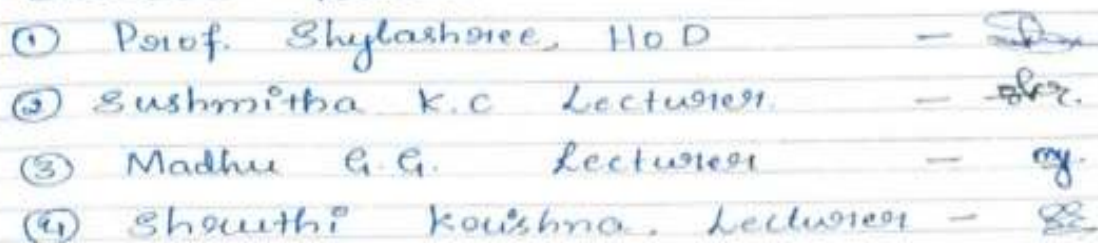 ① Prof. Shylashree, HOD -
② Sushmitha K.C Lecturer. -
③ Madhu G.G. Lecturer -
④ Shruthi Krishna. Lecturer -